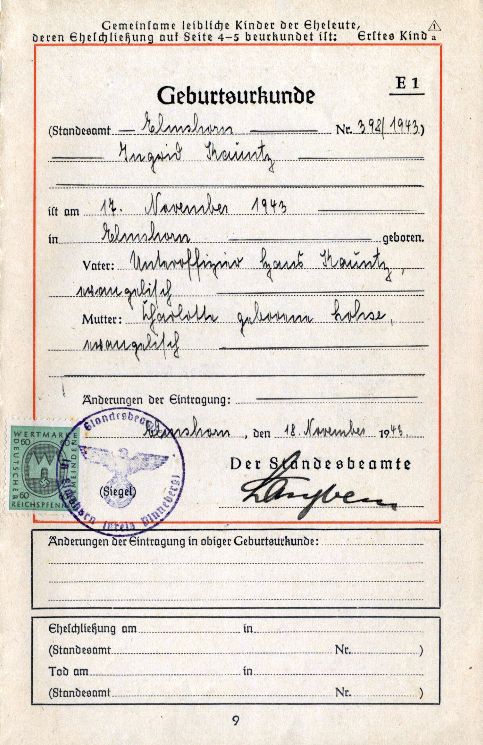 Gemeinsame leibliche Kinder der Eheleute,
deren Eheschließung auf Seite 4-5 beurkundet ist: Erstes Kind
E 1
Geburtsurkunde
(Standesamt Elmshorn Nr. 398/1943)
Ingrid Kauntz
ist am 17. November 1943
in Elmshorn geboren.
Vater: Unteroffizier Hans Kauntz,
evangelisch
Mutter: Charlotte geborene Lohse,
evangelisch
Änderungen der Eintragung:
Elmshorn, den 18. November 1943.
Der Standesbeamte
(Siegel)
WERTMARKE
DEUTSCHER
GEMEINDEN
60
60
REICHSPFENNIG
Änderungen der Eintragung in obiger Geburtsurkunde:
Eheschließung am in
(Standesamt Nr. )
Tod am in
(Standesamt Nr. )
9